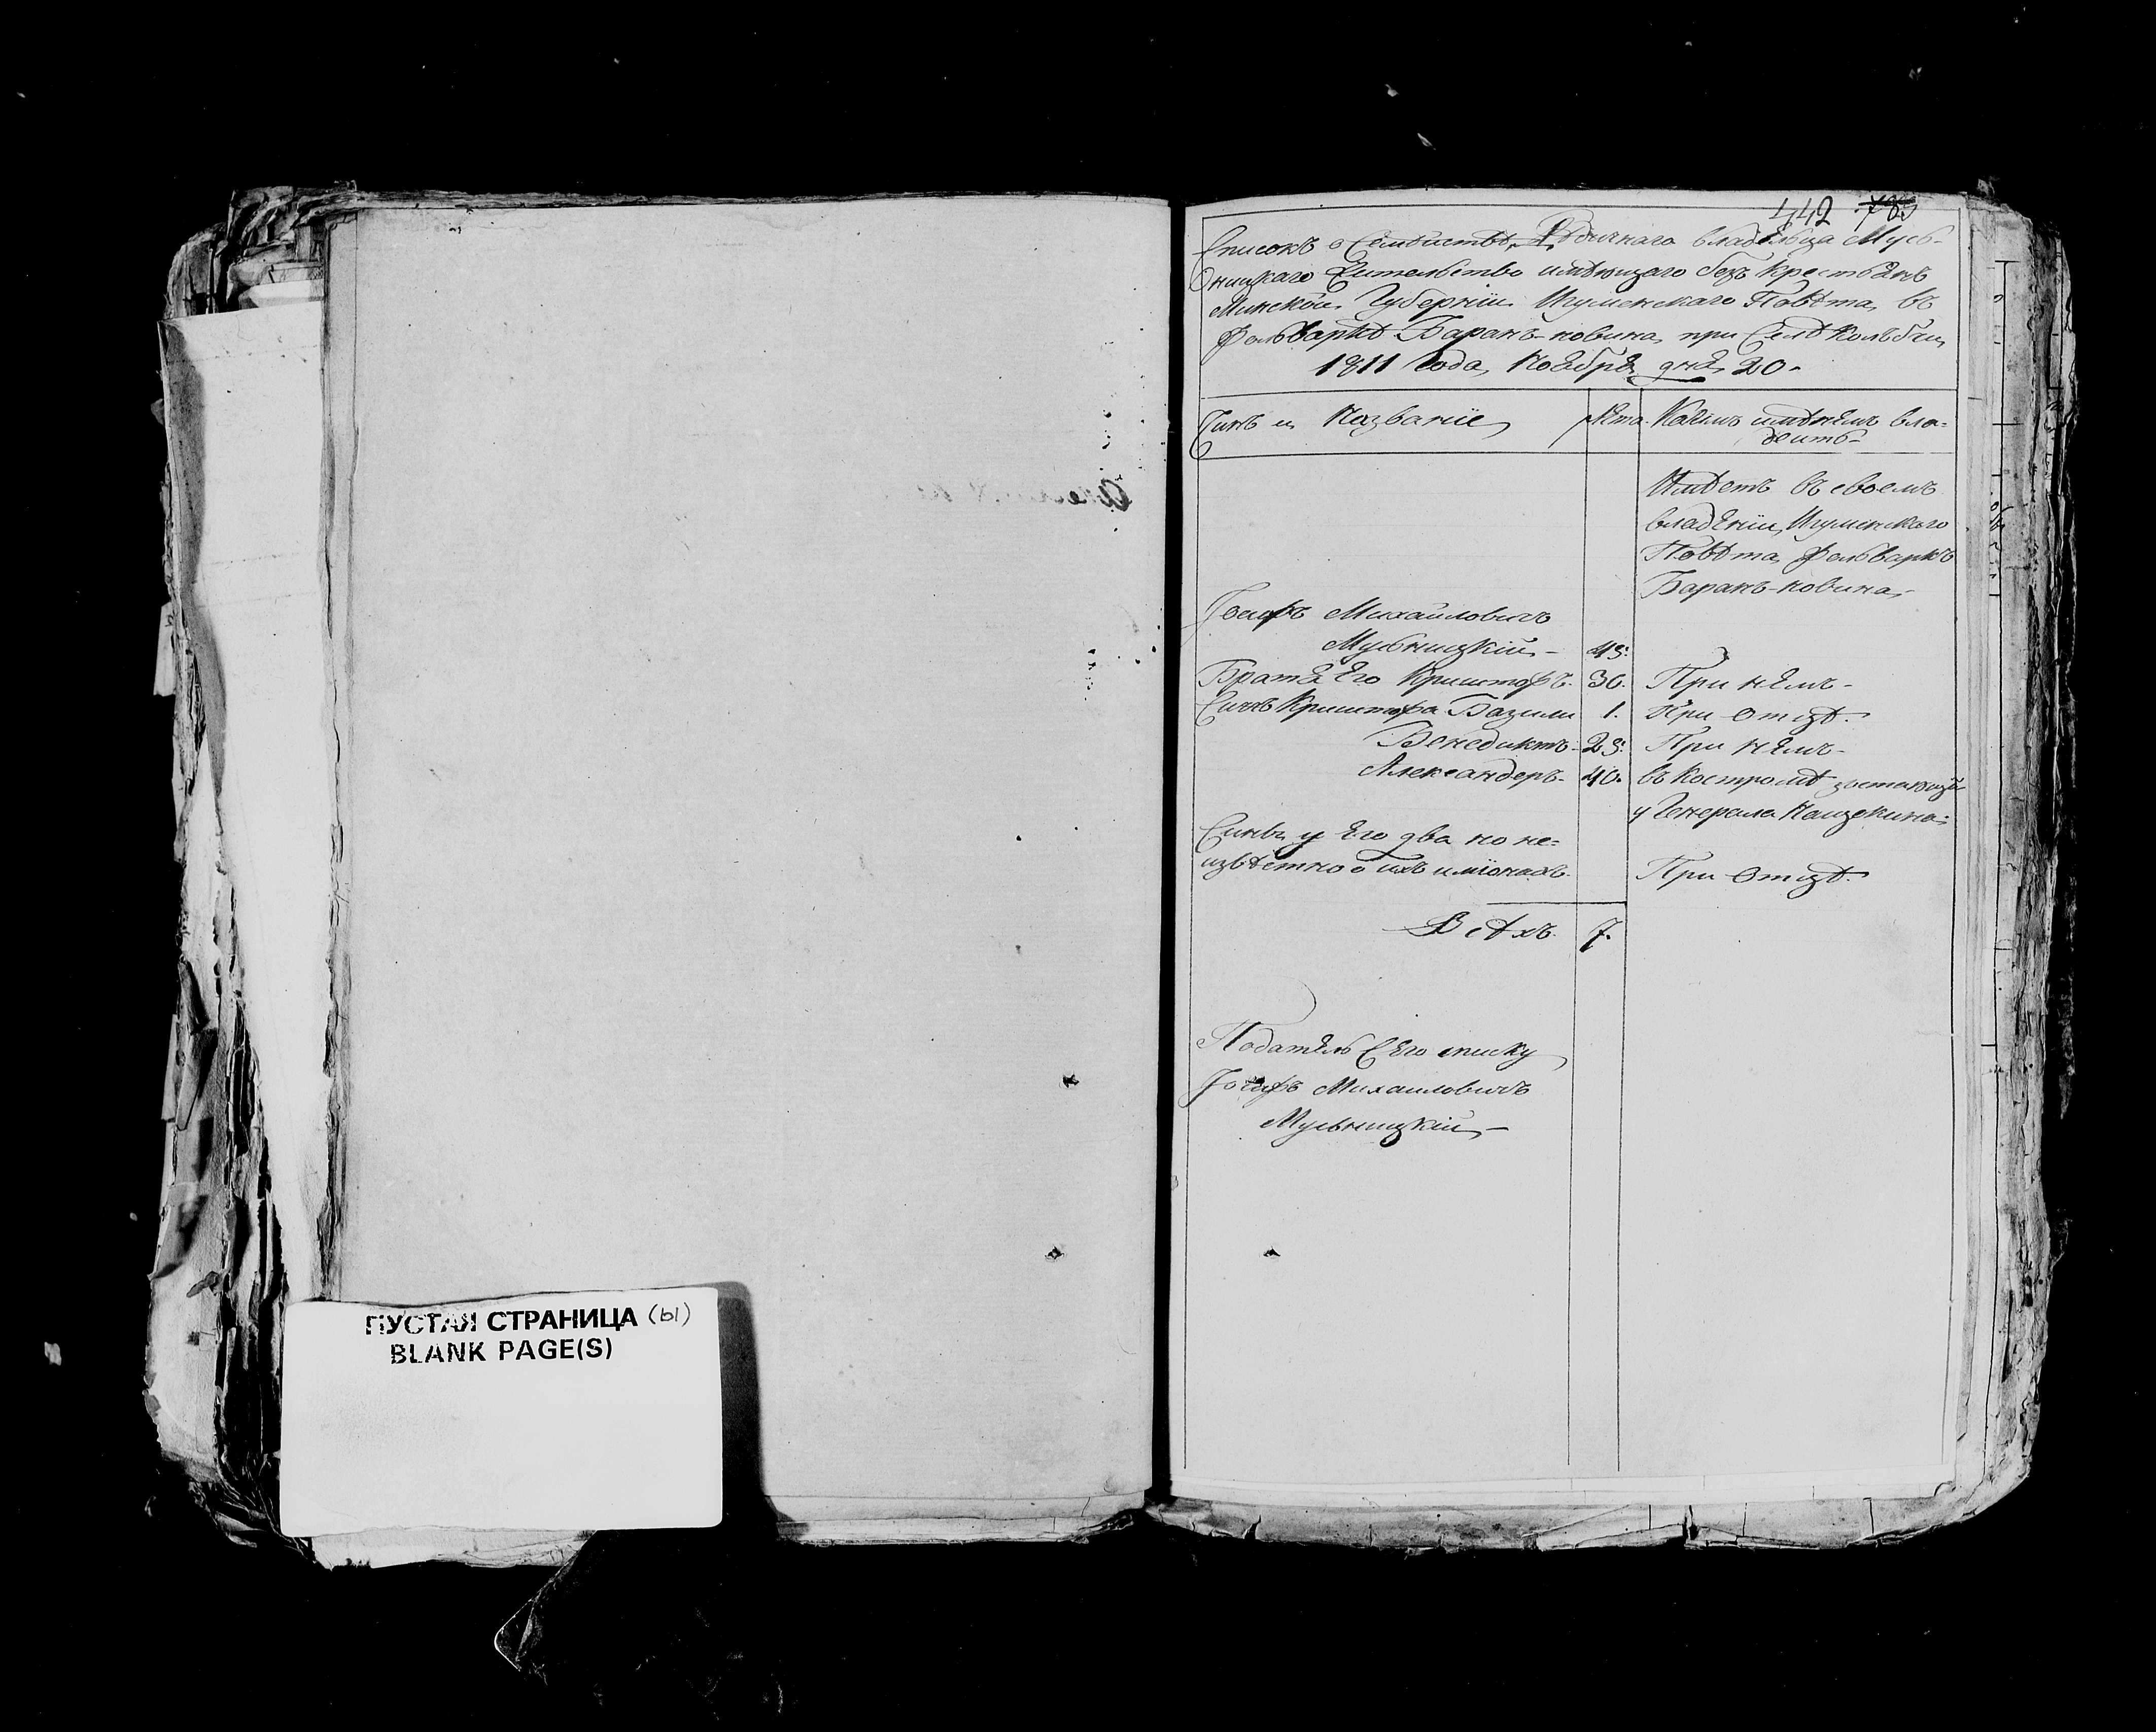 442 785
Списокъ о Семѣйствѣ Вѣдичнаго владѣльца Мусь-
ницкаго Жительство имѣющаго безъ крестьянъ
Минской Губерніи Игуменскаго Повѣта въ
Фольваркѣ Баранъ-новина при Селѣ Кольбчи
1811 Года Ноября дня 20.
Чинъ и Названіе
Лѣта
Какимъ имѣнемъ вла-
деитъ
Имѣетъ въ своемъ
владѣніи Игуменскаго
Повѣта Фольваркъ
Баранъ-новина
Іосифъ Михайловичъ
Мусьницкій 45.
Братья Его Криштофъ 30. При нямъ
Синъ Криштофа Базили 1. При Отцѣ.
Бенедиктъ 25. При нямъ
Александеръ 40. въ Костромѣ
у Генерала
Синъ у Его два но не-
извѣстно о ихъ именахъ. При Отцѣ.
Всѣхъ 7.
Податель Сего списку
Іосифъ Михаиловичъ
Мусьницкій
ПУСТАЯ СТРАНИЦА (ы)
BLANK PAGE(S)